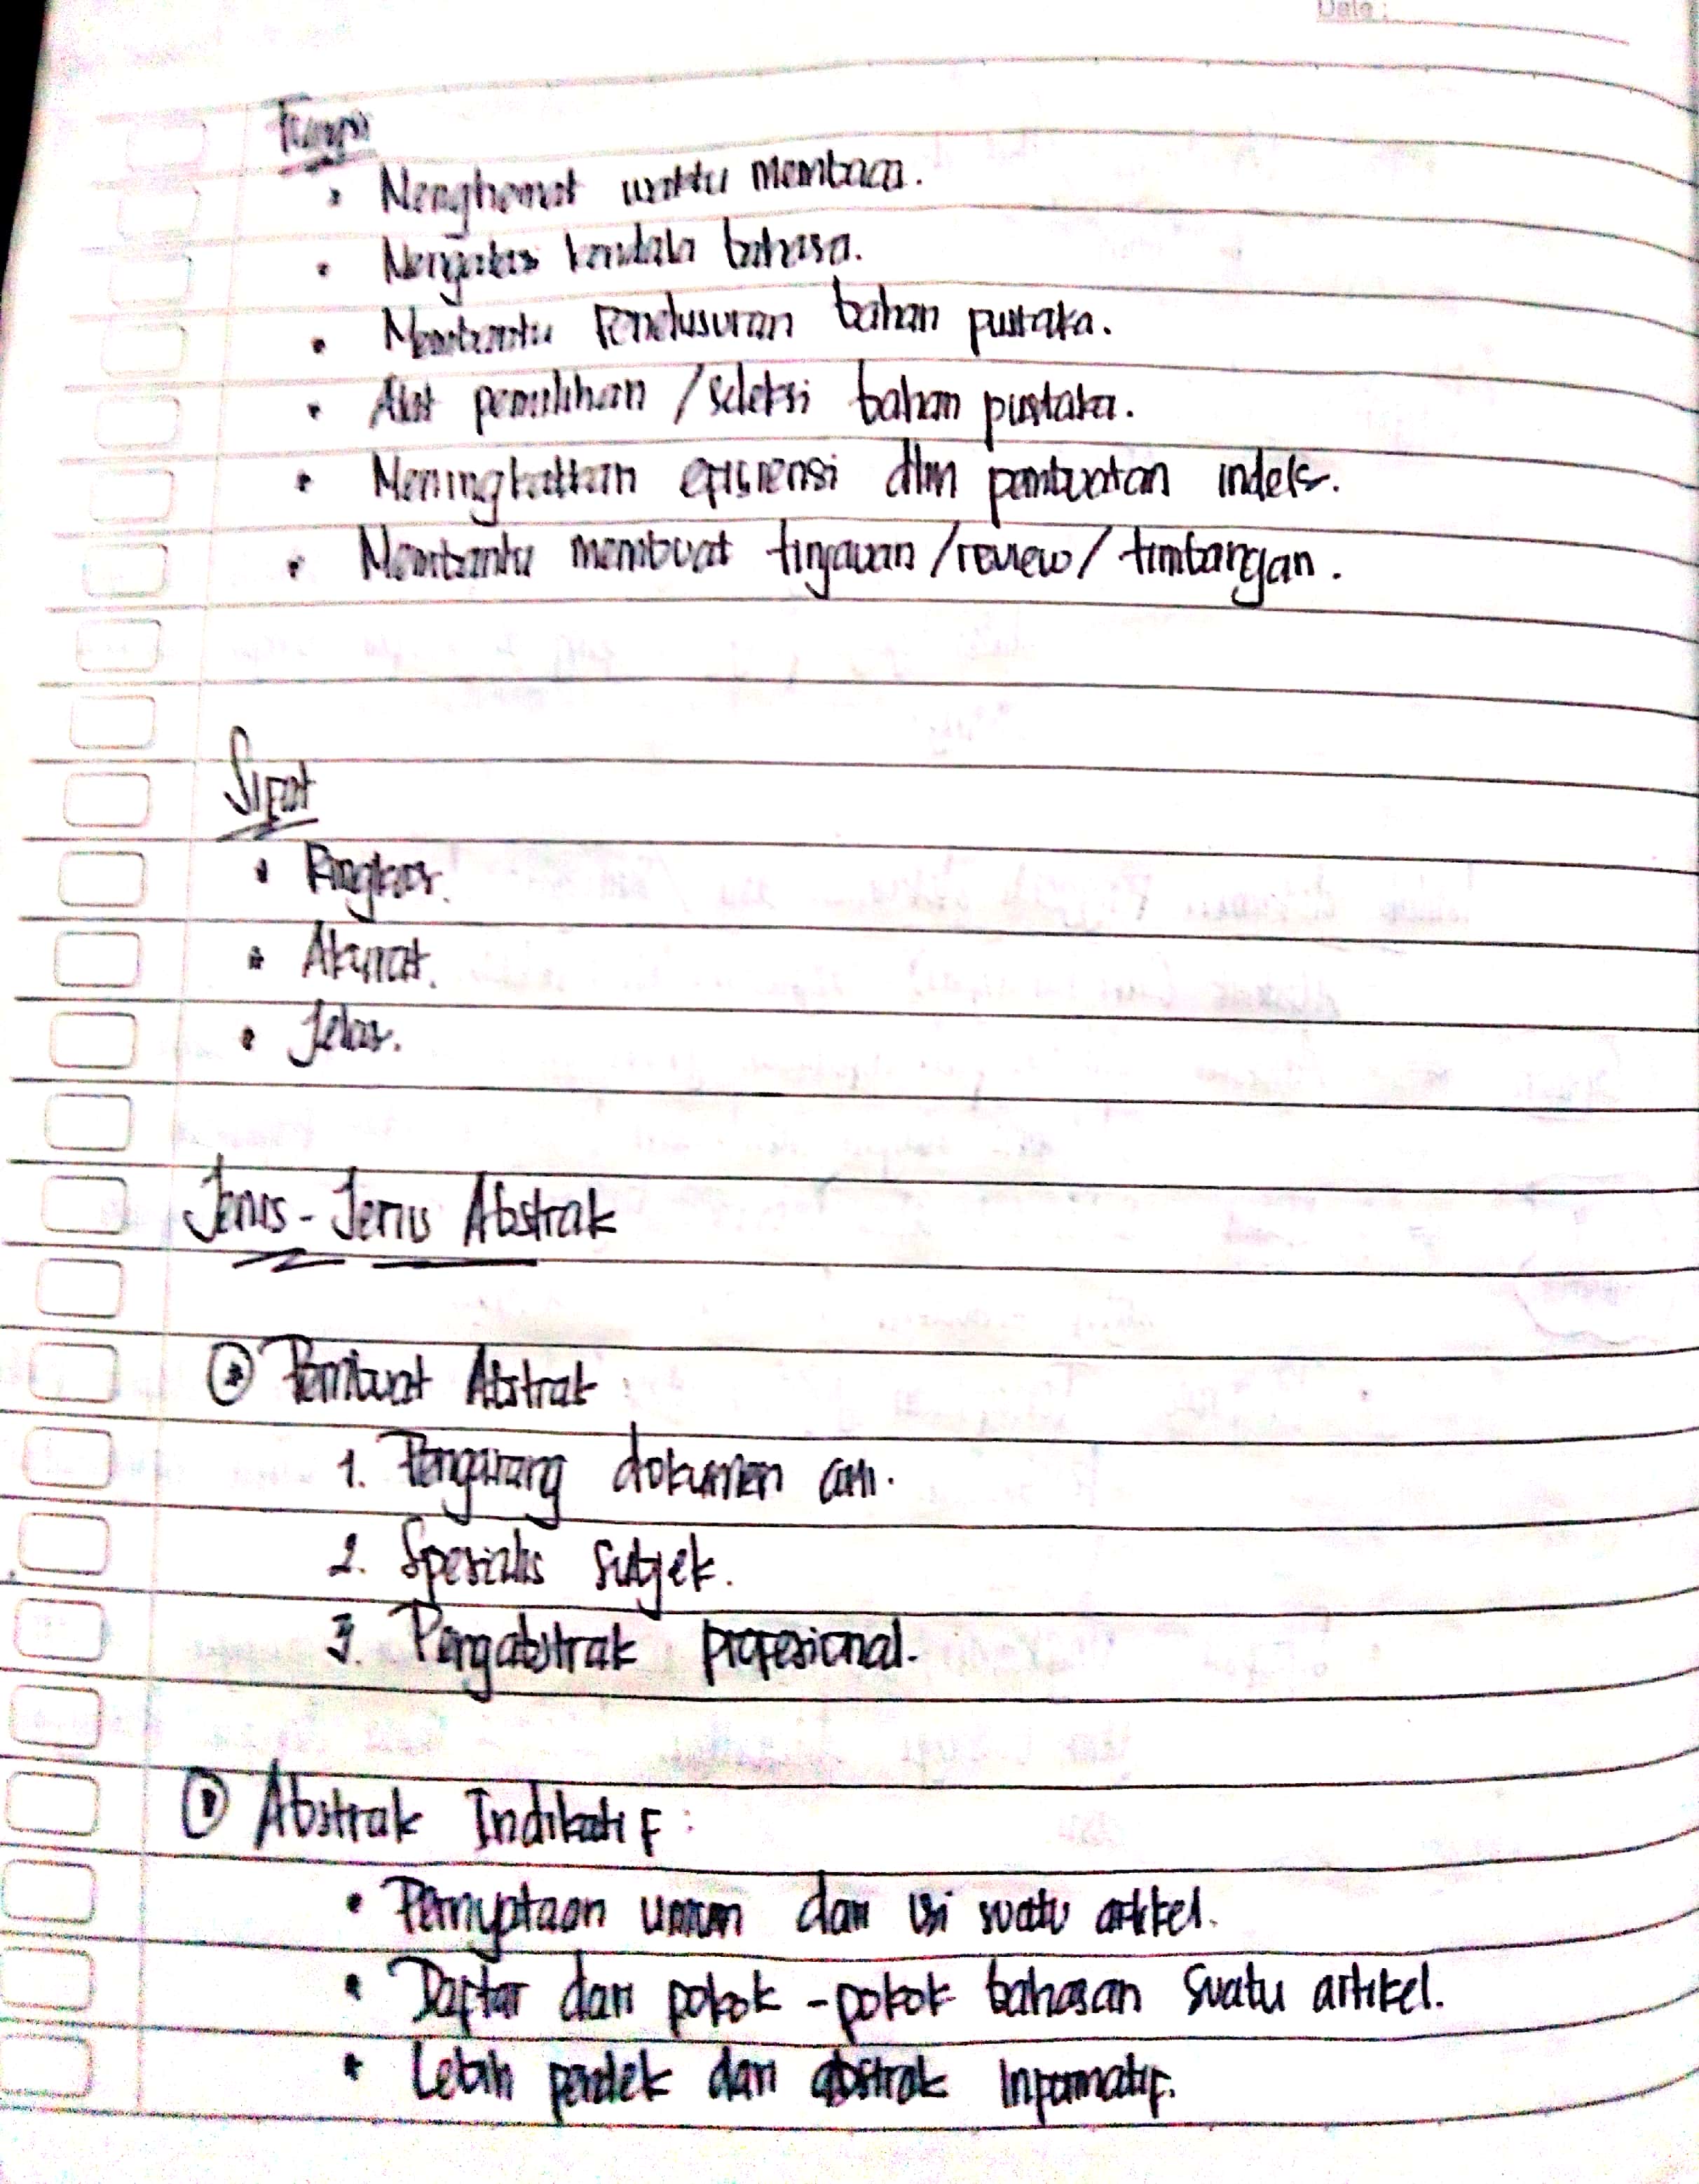 Date :
Fungsi
• Menghemat waktu membaca.
• Mengatasi kendala bahasa.
• Membantu Penelusuran bahan pustaka.
• Alat pemilihan / seleksi bahan pustaka.
• Meningkatkan efisiensi dlm pembuatan indeks.
• Membantu membuat tinjauan / review / timbangan.
Sifat
• Ringkas.
• Akurat.
• Jelas.
Jenis - Jenis Abstrak
Pembuat Abstrak :
1. Pengarang dokumen asli.
2. Spesialis Subjek.
3. Pengabstrak profesional.
Abstrak Indikatif :
• Pernyataan umum dari isi suatu artikel.
• Daftar dari pokok - pokok bahasan suatu artikel.
• Lebih pendek dari abstrak Informatif.